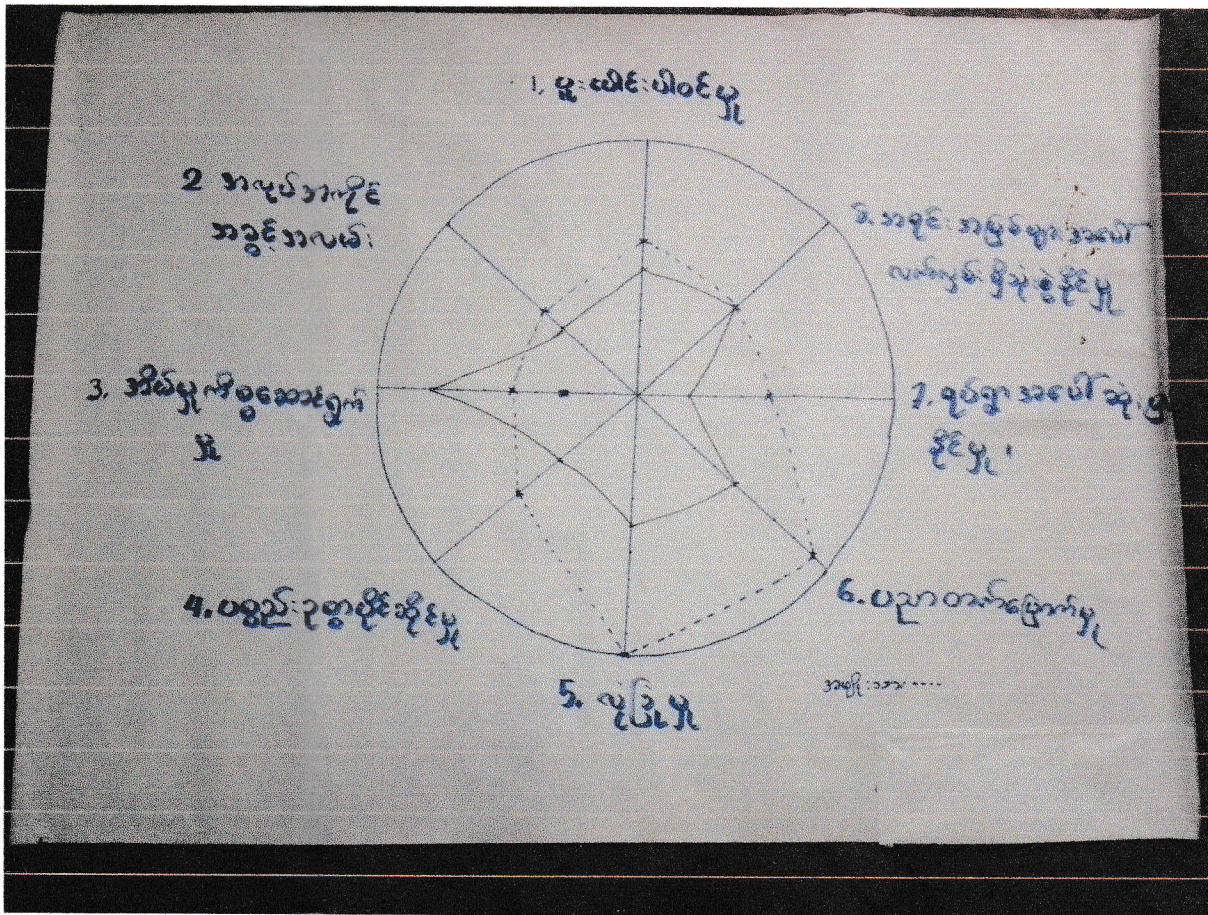 1. ပူးပေါင်းပါဝင်မှု
2 အလုပ်အကိုင်
အခွင့်အလမ်း
3. အိမ်မှုကိစ္စဆောင်ရွက်
မှု
4. ပစ္စည်းဥစ္စာပိုင်ဆိုင်မှု
5. လုံခြုံမှု
6. ပညာတတ်မြောက်မှု
7. ရပ်ရွာအပေါ်ဆုံးဖြ
နိုင်မှု
8. အရင်းအမြစ်များအပေါ်
လက်လှမ်းမှီသုံးစွဲနိုင်မှု
အမျိုးသား----